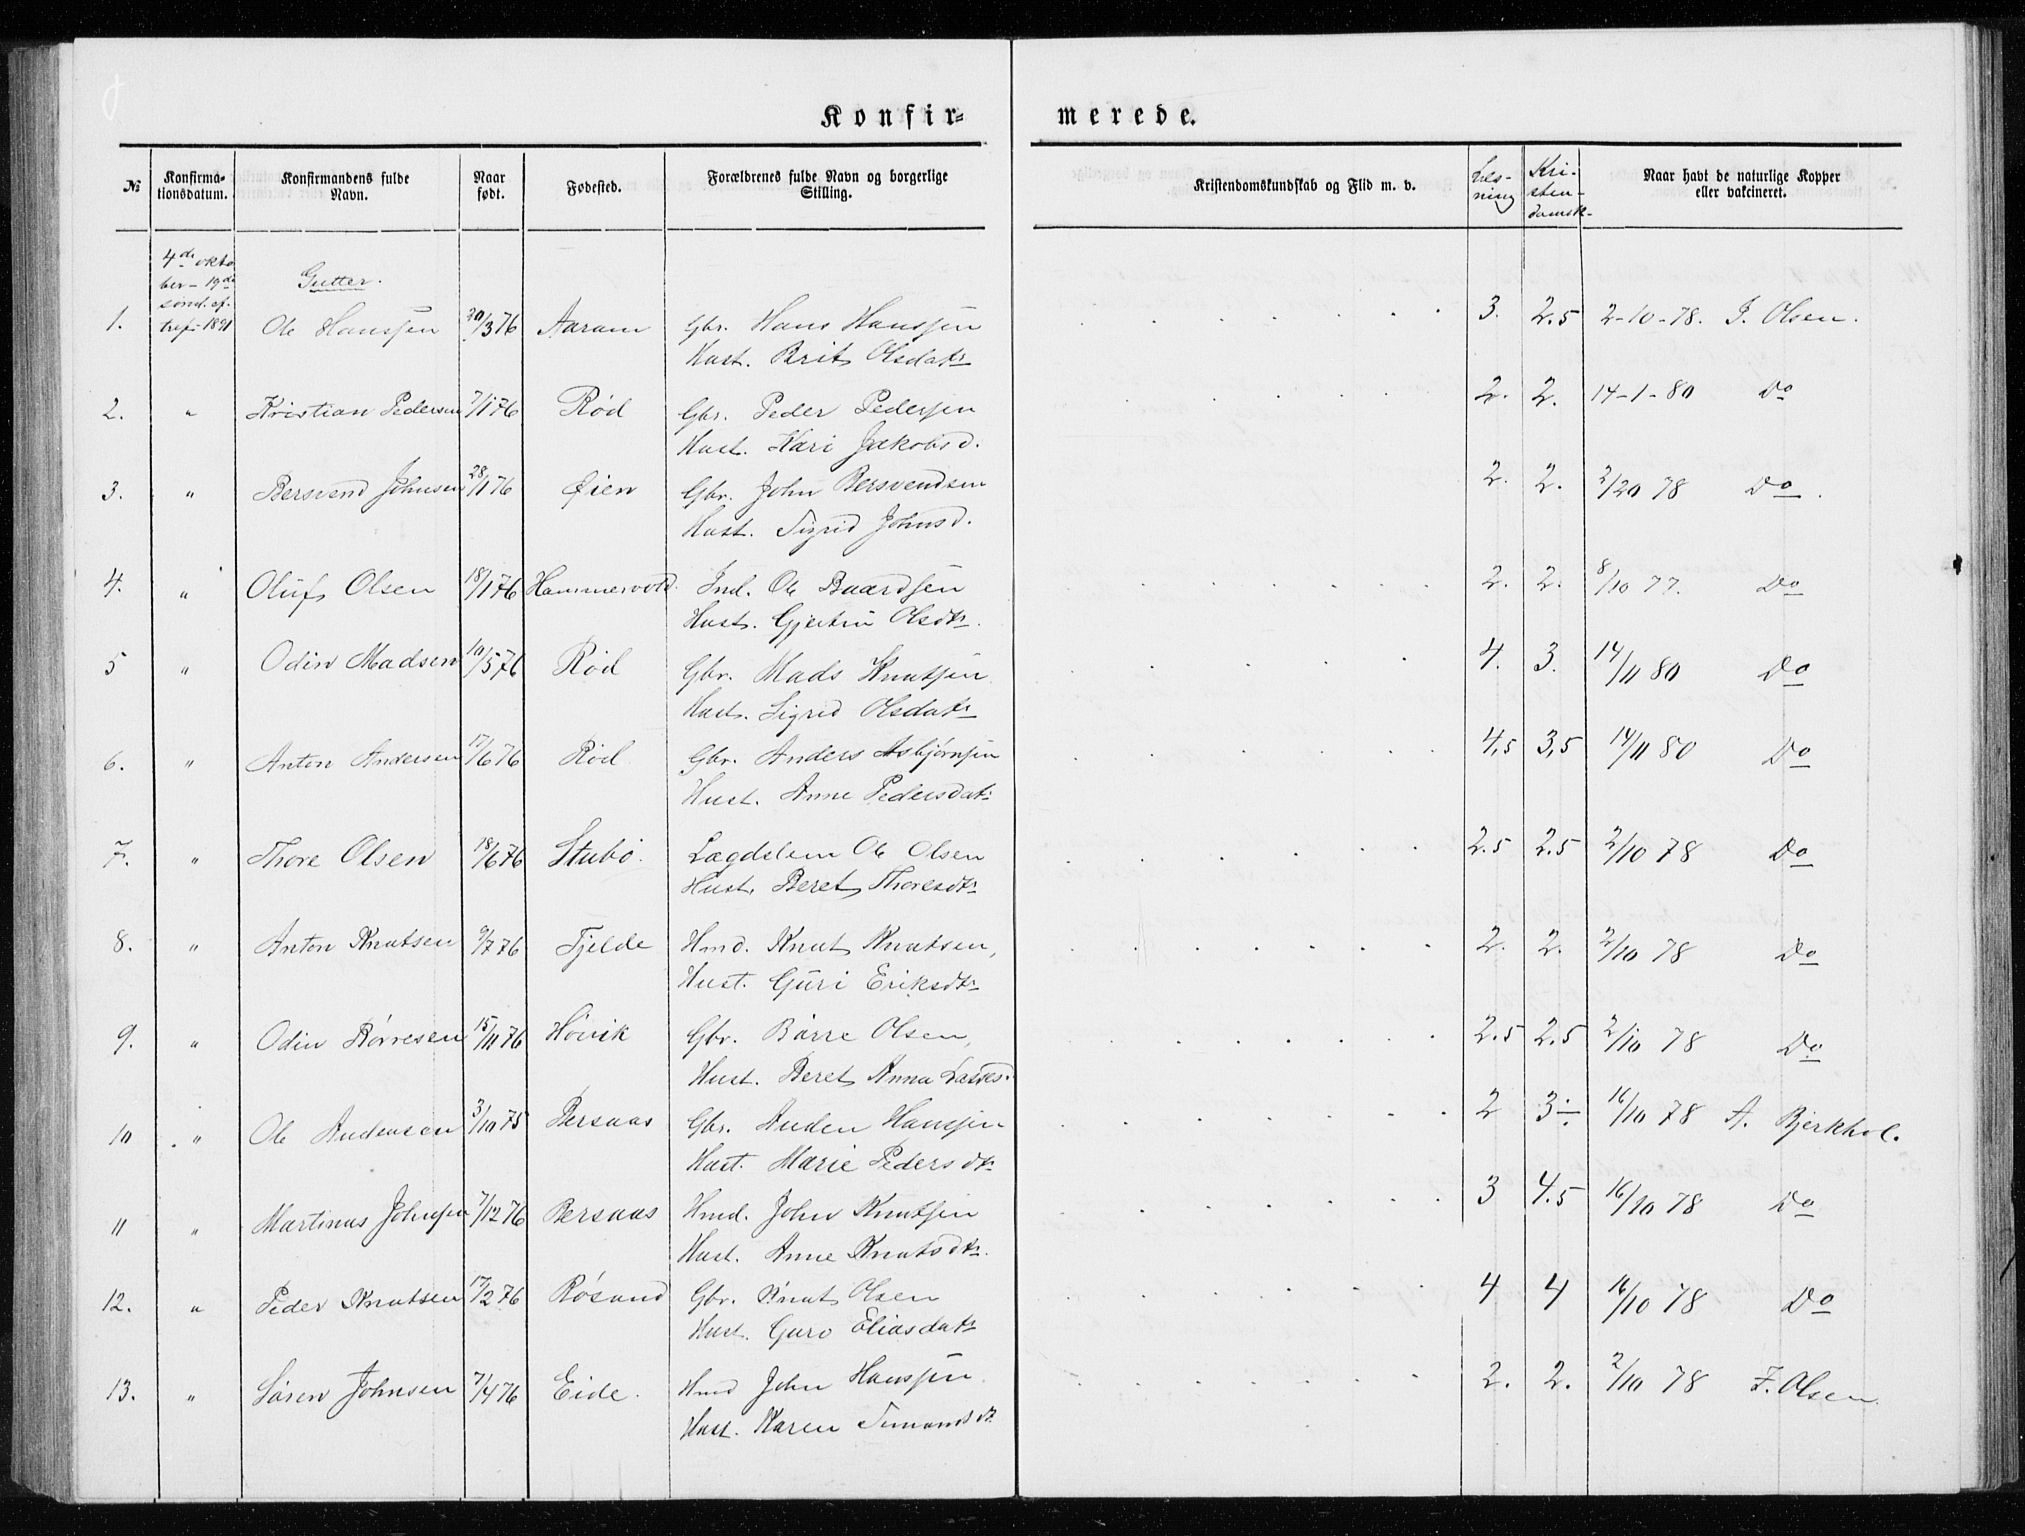 Konfir=
merede.
№ Konfirma-tionsdatum. Konfirmandens fulde Navn. Naar født. Fødested. Forældrenes fulde Navn og borgerlige Stilling. Kristendomskundskab og Flid m. v. Læs-ning Kri-sten-domsk- Naar havt de naturlige Kopper eller vakcineret.
4de okto
ber - 19de
sønd. ef.
tref - 1891
Gutter.
1. Ole Hanssen 20/3 76 Aaram Gbr. Hans Hanssen 3. 2.5 2-10-78. J. Olsen.
Hust. Brit Olsdatr
2. " Kristian Pedersen 7/1 76 Rød Gbr. Peder Pedersen 2. 2. 14-1-80 Do
Hust. Kari Jakobsd.
3. " Bersvend Johnsen 28/1 76 Øien Gbr. John Bersvendsen 2. 2. 2/20 78 Do.
Hust. Sigrid Johnsd.
4. " Oluf Olsen 18/1 76 Hammervold. Ind. Ole Baardsen 2. 2. 8/10 77. Do
Hust. Gjertru Olsdtr.
5 " Odin Madsen 10/5 76 Rød Gbr. Mads Knutsen 4. 3. 14/11 80 Do
Hust. Sigrid Olsdatr
6. " Anton Andersen 17/6 76 Rød Gbr. Anders Asbjørnsen 4,5 3,5 14/11 80 Do
Hust. Anne Pedersdatr
7. " Thore Olsen 18/6 76 Stubø. Lægdslem Ole Olsen 2.5 2.5 2/10 78 Do
Hust. Beret Thoresdtr
8. " Anton Knutsen 9/7 76 Fjelde Hmd. Knut Knutsen, 2. 2. 2/10 78 Do
Hust. Guri Eriksdtr
9. " Odin Børresen 15/11 76 Høvik Gbr. Børre Olsen, 2.5 2.5 2/10 78 Do
Hust. Beret Anna
10 " Ole Audensen 3/10 75 Bersaas Gbr. Auden Hanssen 2 3÷ 16/10 78 A. Bjerkhol.
Hust. Marie Pedersdtr
11 " Martinus Johnsen 7/12 76 Bersaas Hmd. John Knutsen 3 4.5 16/10 78 Do
Hust. Anne Knutsdtr.
12. " Peder Knutsen 17/2 76 Røsand Gbr. Knut Olsen 4 4 16/10 78 Do
Hust. Guro Eliasdatr
13. " Søren Johnsen 7/4 76 Eide. Hmd John Hanssen. 2. 2. 2/10 78 J. Olsen
Hust. Karen Simonsdt